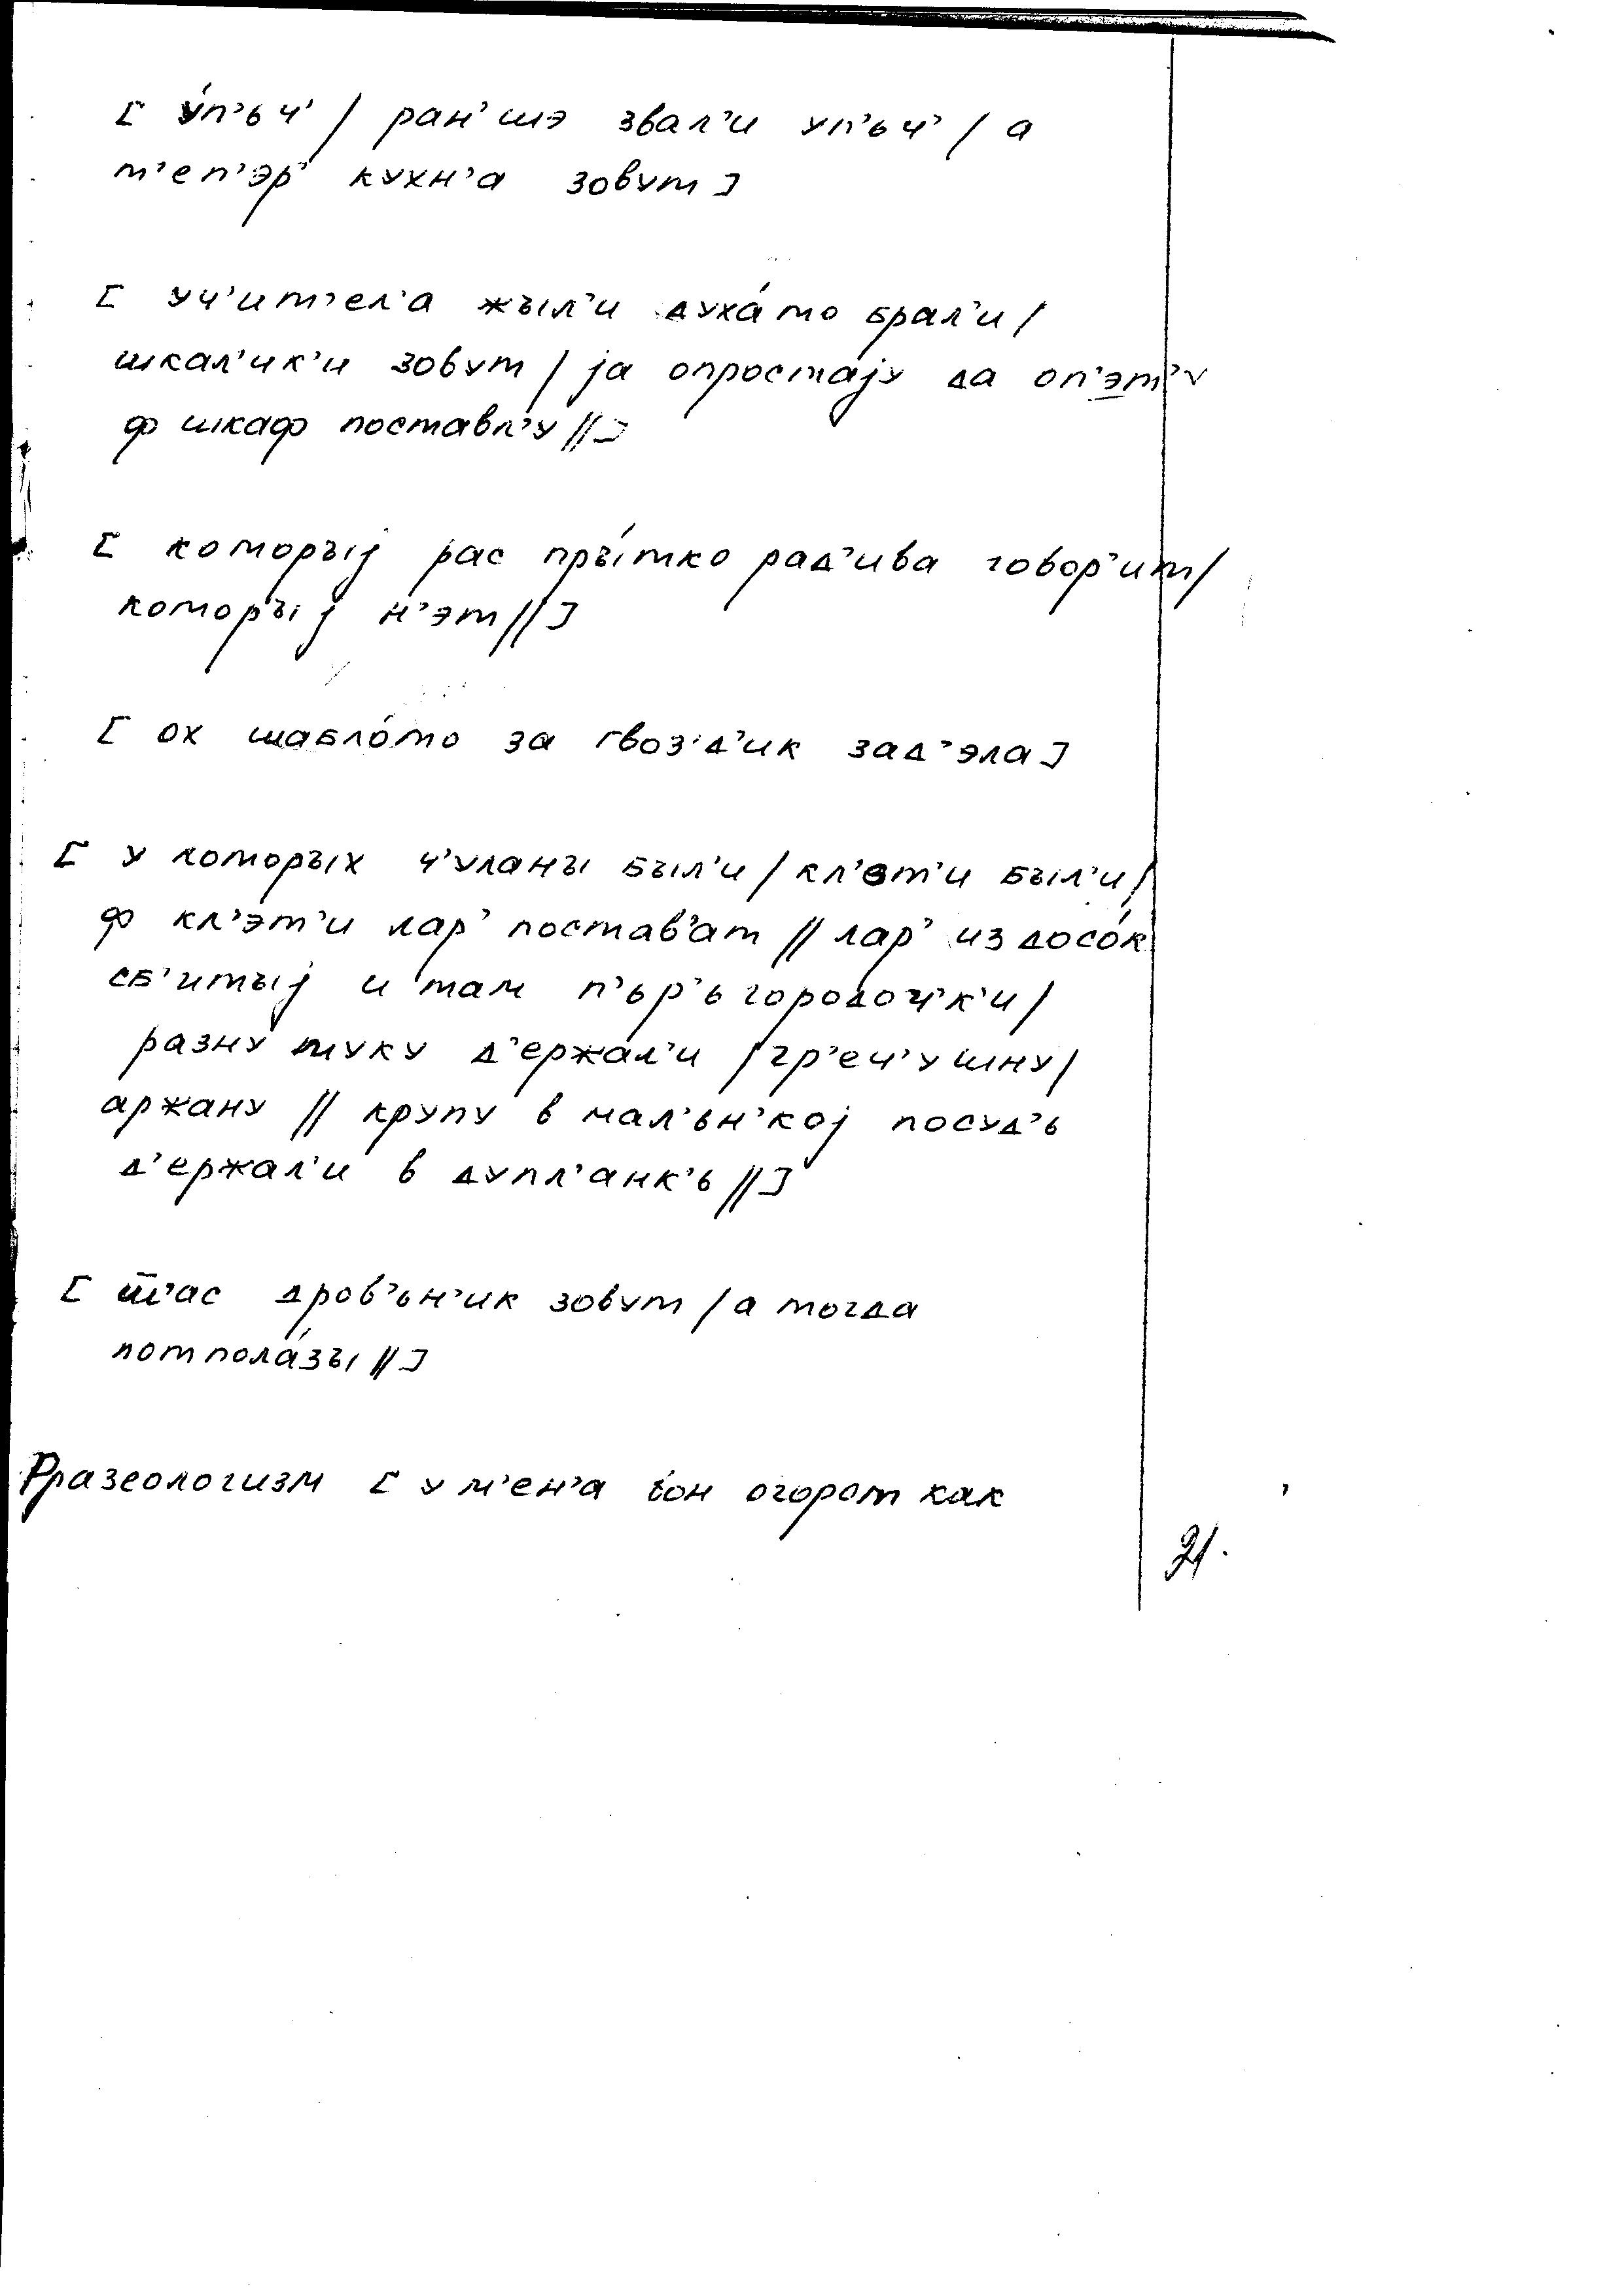 [ у́п’ьч’ / ран’шэ звал’и уп’ьч’ / а
т’еп’эр’ кухн’а зовут ]
[ уч’ит’ел’а жыл’и духа́то брал’и /
шкал’ик’и зовут / jа опростаjу да оп’эт’
ф шкаф поставл’у // ]
[ которыj рас пры́тко рад’ива говор’ит /
которыj н’эт // ]
[ ох шабло́то за гвоз’д’ик зад’эла ]
[ у которых ч’уланы был’и / кл’эт’и был’и /
ф кл’эт’и лар’ постав’ат // лар’ из досо́к
сб’итыj и там п’ьр’ьгородоч’к’и /
разну муку д’ержал’и / гр’еч’ушну /
аржану // крупу в мал’ьн’коj посуд’ь
д’ержал’и в дупл’анк’ь // ]
[ ш̅’ас дров’ьн’ик зовут / а тогда
потпола́зы // ]
Фразеологизм [ у м’ен’а вон огорот как
21.